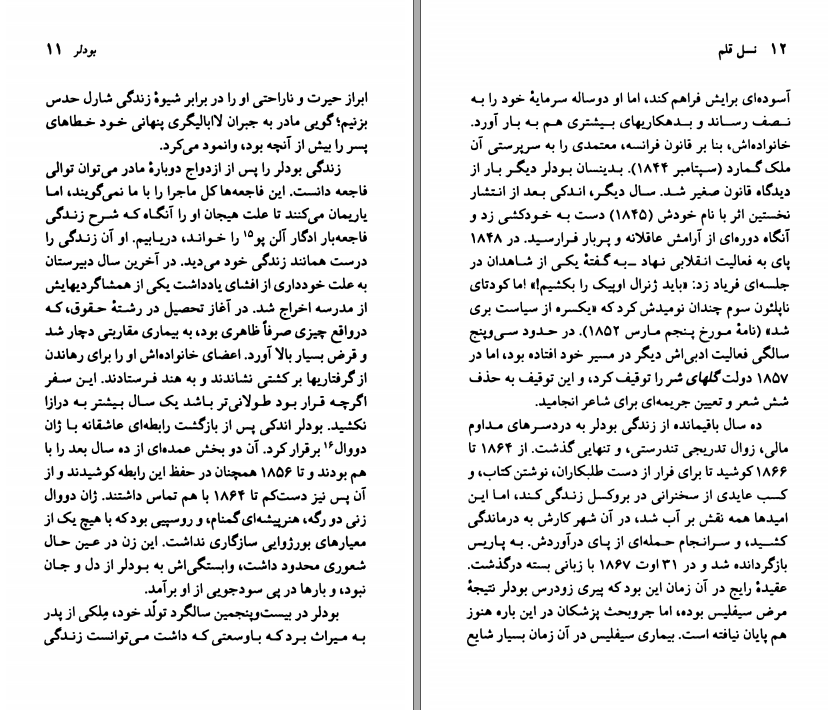 بودلر ۱۱
ابراز حیرت و ناراحتی او را در برابر شیوهٔ زندگی شارل حدس
بزنیم؛ گویی مادر به جبران لاابالیگری پنهانی خود خطاهای
پسر را بیش از آنچه بود، وانمود می‌کرد.
زندگی بودلر را پس از ازدواج دوبارهٔ مادر می‌توان توالی
فاجعه دانست. این فاجعه‌ها کل ماجرا را با ما نمی‌گویند، اما
یاریمان می‌کنند تا علت هیجان او را آنگاه که شرح زندگی
فاجعه‌بار ادگار آلن پو۱۵ را خواند، دریابیم. او آن زندگی را
درست همانند زندگی خود می‌دید. در آخرین سال دبیرستان
به علت خودداری از افشای یادداشت یکی از همشاگردیهایش
از مدرسه اخراج شد. در آغاز تحصیل در رشتهٔ حقوق، که
درواقع چیزی صرفاً ظاهری بود، به بیماری مقاربتی دچار شد
و قرض بسیار بالا آورد. اعضای خانواده‌اش او را برای رهاندن
از گرفتاریها بر کشتی نشاندند و به هند فرستادند. این سفر
اگرچه قرار بود طولانی‌تر باشد یک سال بیشتر به درازا
نکشید. بودلر اندکی پس از بازگشت رابطه‌ای عاشقانه با ژان
دووال۱۶ برقرار کرد. آن دو بخش عمده‌ای از ده سال بعد را با
هم بودند و تا ۱۸۵۶ همچنان در حفظ این رابطه کوشیدند و از
آن پس نیز دست‌کم تا ۱۸۶۴ با هم تماس داشتند. ژان دووال
زنی دو رگه، هنرپیشه‌ای گمنام، و روسپیی بود که با هیچ یک از
معیارهای بورژوایی سازگاری نداشت. این زن در عین حال
شعوری محدود داشت، وابستگی‌اش به بودلر از دل و جان
نبود، و بارها در پی سودجویی از او برآمد.
بودلر در بیست‌وپنجمین سالگرد تولّد خود، مِلکی از پدر
به میراث برد که باوسعتی که داشت می‌توانست زندگی
۱۲ نسل قلم
آسوده‌ای برایش فراهم کند، اما او دوساله سرمایهٔ خود را به
نصف رساند و بدهکاریهای بیشتری هم به بار آورد.
خانواده‌اش، بنا بر قانون فرانسه، معتمدی را به سرپرستی آن
ملک گمارد (سپتامبر ۱۸۴۴). بدینسان بودلر دیگر بار از
دیدگاه قانون صغیر شد. سال دیگر، اندکی بعد از انتشار
نخستین اثر با نام خودش (۱۸۴۵) دست به خودکشی زد و
آنگاه دوره‌ای از آرامش عاقلانه و پربار فرارسید. در ۱۸۴۸
پای به فعالیت انقلابی نهاد ــ به گفتهٔ یکی از شاهدان در
جلسه‌ای فریاد زد: «باید ژنرال اوپیک را بکشیم!» اما کودتای
ناپلئون سوم چندان نومیدش کرد که «یکسره از سیاست بری
شد» (نامهٔ مورخ پنجم مارس ۱۸۵۲). در حدود سی‌وپنج
سالگی فعالیت ادبی‌اش دیگر در مسیر خود افتاده بود، اما در
۱۸۵۷ دولت گلهای شر را توقیف کرد، و این توقیف به حذف
شش شعر و تعیین جریمه‌ای برای شاعر انجامید.
ده سال باقیمانده از زندگی بودلر به دردسرهای مداوم
مالی، زوال تدریجی تندرستی، و تنهایی گذشت. از ۱۸۶۴ تا
۱۸۶۶ کوشید تا برای فرار از دست طلبکاران، نوشتن کتاب، و
کسب عایدی از سخنرانی در بروکسل زندگی کند، اما این
امیدها همه نقش بر آب شد، در آن شهر کارش به درماندگی
کشید، و سرانجام حمله‌ای از پای درآوردش. به پاریس
بازگردانده شد و در ۳۱ اوت ۱۸۶۷ با زبانی بسته درگذشت.
عقیدهٔ رایج در آن زمان این بود که پیری زودرس بودلر نتیجهٔ
مرض سیفلیس بوده، اما جروبحث پزشکان در این باره هنوز
هم پایان نیافته است. بیماری سیفلیس در آن زمان بسیار شایع